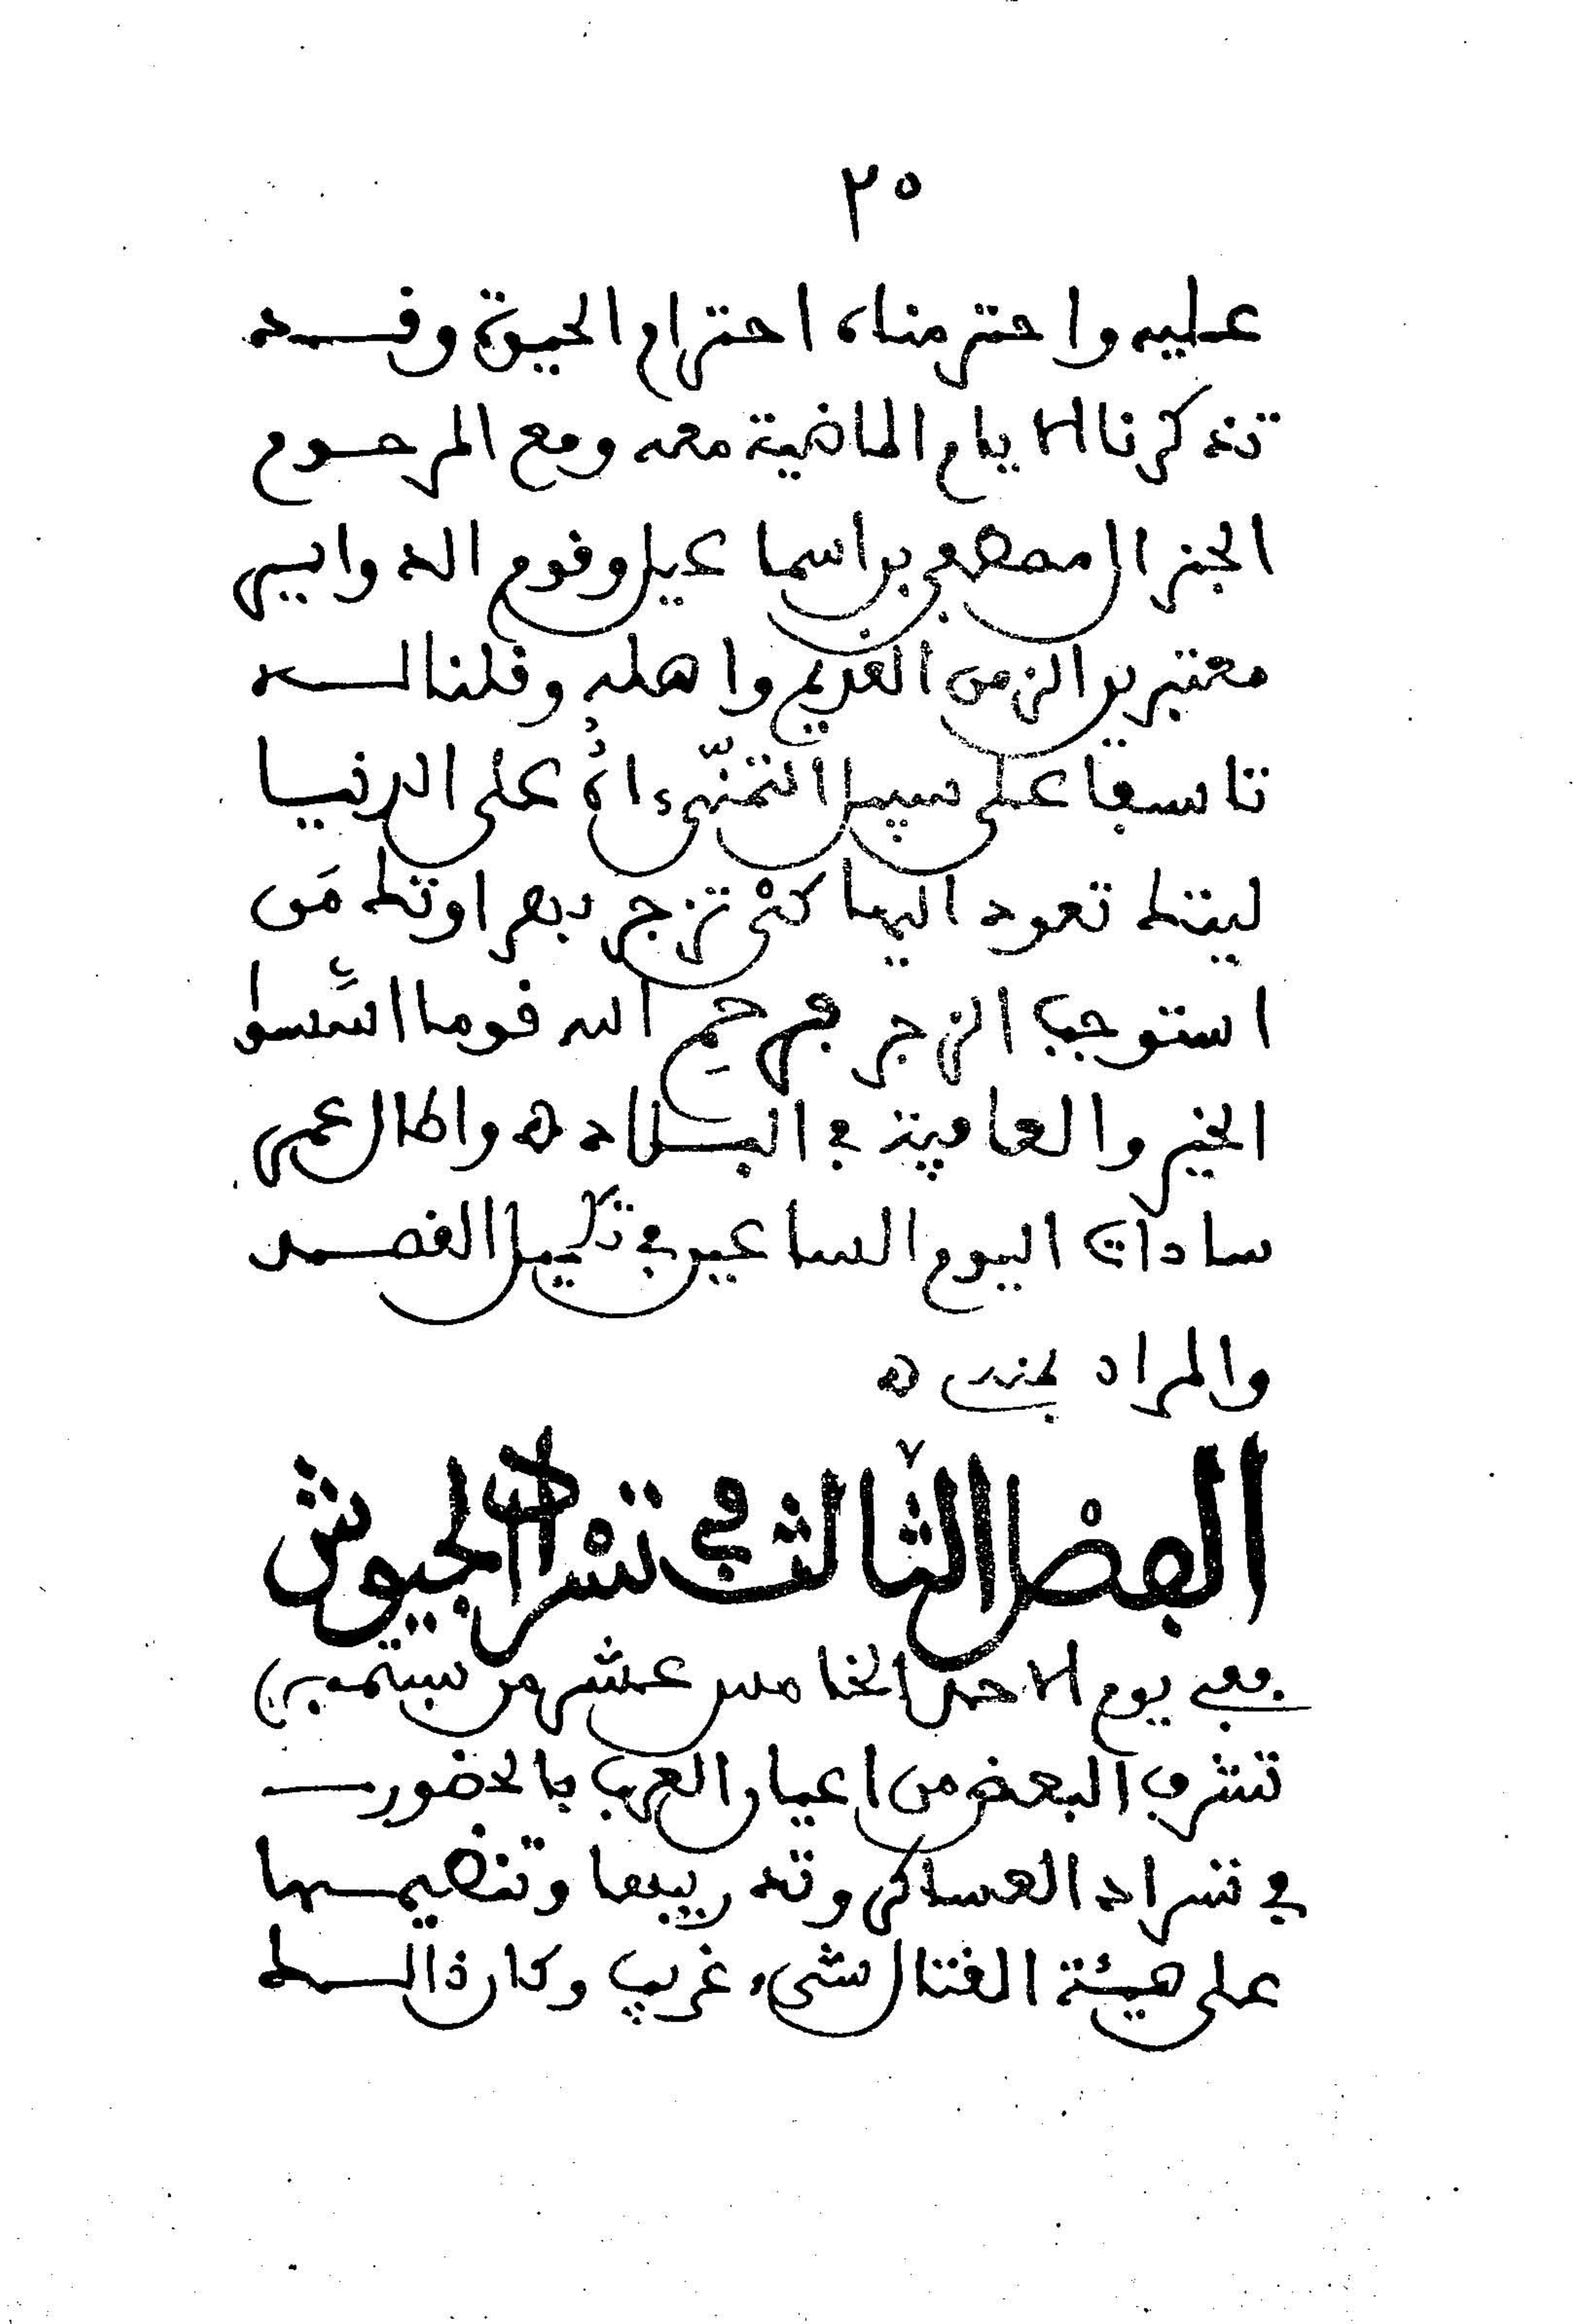 ٢٥
عليه واحترمناه احترام الحيوة وفد
تذكرنا الايام الماضية معه ومع المرحوم
الجنرال مصطفى بن اسماعيل وقوم الدواير
معتبرين الزمن القديم واهله وقلنا له
تاسفا على سبيل التمنّي ءاهُ على الدنيا
ليتك تعود اليها كىْ تزجر بصراوتك مَن
استوجب الزجر فرحِم الله قوما اسّسوا
الخير والعافية في البلاد ه واطال عمر
سادات اليوم الساعين في تكميل القصد
والمراد بمنه ه
الفصْل الثّالث في تسْراد الجيوش
ففي يوم الاحد الخامس عشر من سبتمبر
تشرف البعض من اعيان العرب بالحضور
في تسراد العساكر وتدريبها وتنظيمها
على هيئة القتال شىء غريب وكان ذالك